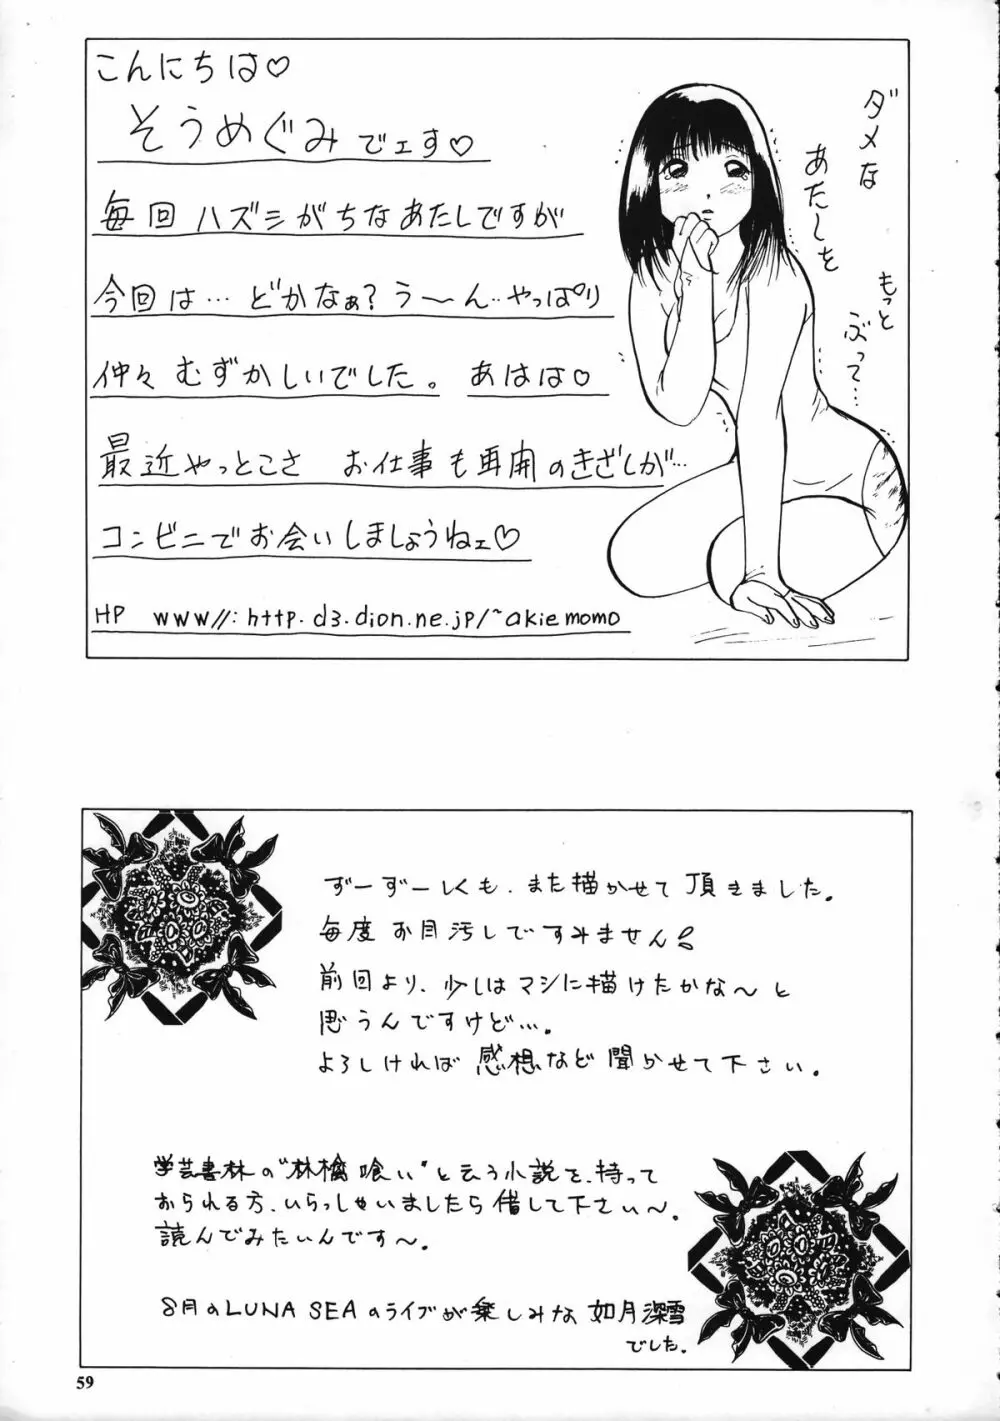 こんにちは♡
そうめぐみでェす♡
毎回ハズシがちなあたしですが
今回は…どかなぁ?う〜ん‥やっぱり
仲々むずかしいでした。あはは♡
最近やっとこさ お仕事も再開のきざしが…
コンビニでお会いしましょうねェ♡
HP www//:http.d3.dion.ne.jp/~akiemomo
ダメな
あたしを
もっと
ぶって…
ずーずーしくも、また描かせて頂きました。
毎度お目汚しですみません!
前回より、少しはマシに描けたかな〜と
思うんですけど…。
よろしければ感想など聞かせて下さい。
学芸書林の"林檎喰い"と云う小説を、持って
おられる方、いらっしゃいましたら借して下さい〜。
読んでみたいんです〜。
8月のLUNA SEAのライブが楽しみな 如月深雪
でした。
59